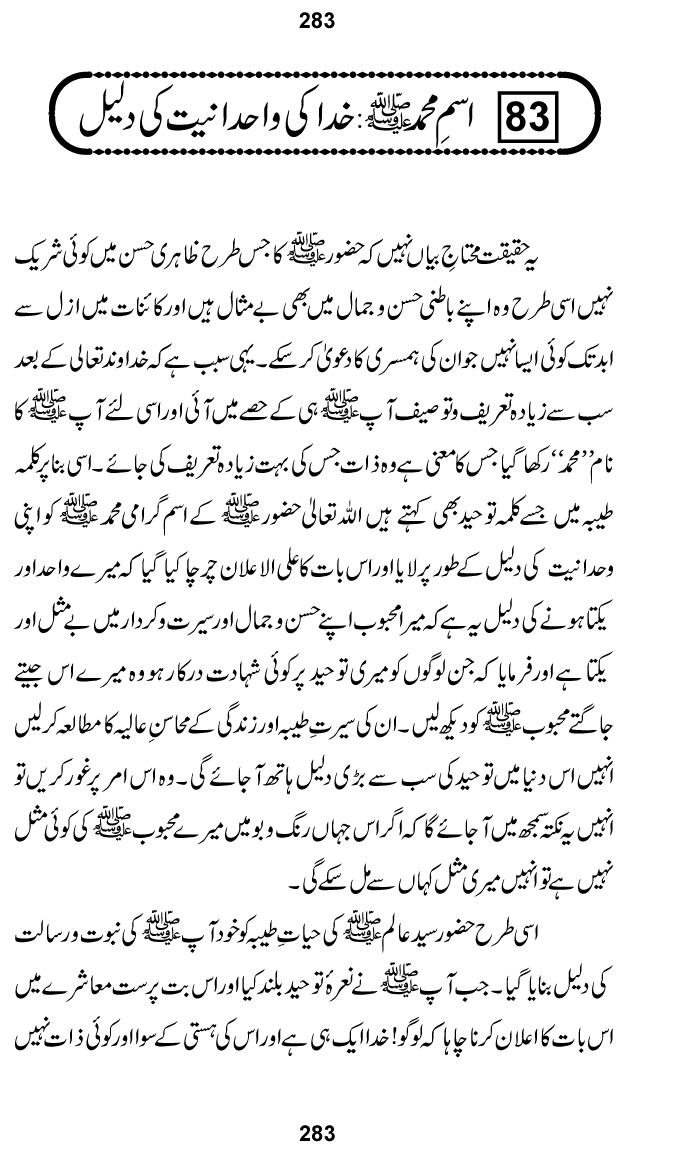 283
83 اسمِ محمدﷺ: خدا کی واحدانیت کی دلیل
یہ حقیقت محتاجِ بیاں نہیں کہ حضورﷺ کا جس طرح ظاہری حسن میں کوئی شریک
نہیں اسی طرح وہ اپنے باطنی حسن و جمال میں بھی بے مثال ہیں اور کائنات میں ازل سے
ابد تک کوئی ایسا نہیں جو ان کی ہمسری کا دعویٰ کر سکے۔ یہی سبب ہے کہ خداوند تعالی کے بعد
سب سے زیادہ تعریف و توصیف آپﷺ ہی کے حصے میں آئی اور اسی لئے آپﷺ کا
نام ’’محمد‘‘ رکھا گیا جس کا معنی ہے وہ ذات جس کی بہت زیادہ تعریف کی جائے۔ اسی بنا پر کلمہ
طیبہ میں جسے کلمہ توحید بھی کہتے ہیں اللہ تعالیٰ حضورﷺ کے اسم گرامی محمدﷺ کو اپنی
وحدانیت کی دلیل کے طور پر لایا اور اس بات کا علی الاعلان چرچا کیا گیا کہ میرے واحد اور
یکتا ہونے کی دلیل یہ ہے کہ میرا محبوب اپنے حسن و جمال اور سیرت و کردار میں بے مثل اور
یکتا ہے اور فرمایا کہ جن لوگوں کو میری توحید پر کوئی شہادت درکار ہو وہ میرے اس جیتے
جاگتے محبوبﷺ کو دیکھ لیں۔ ان کی سیرتِ طیبہ اور زندگی کے محاسنِ عالیہ کا مطالعہ کر لیں
انہیں اس دنیا میں توحید کی سب سے بڑی دلیل ہاتھ آ جائے گی۔ وہ اس امر پر غور کریں تو
انہیں یہ نکتہ سمجھ میں آ جائے گا کہ اگر اس جہاں رنگ و بو میں میرے محبوبﷺ کی کوئی مثل
نہیں ہے تو انہیں میری مثل کہاں سے مل سکے گی۔
اسی طرح حضور سید عالمﷺ کی حیاتِ طیبہ کو خود آپﷺ کی نبوت و رسالت
کی دلیل بنایا گیا۔ جب آپﷺ نے نعرۂ توحید بلند کیا اور اس بت پرست معاشرے میں
اس بات کا اعلان کرنا چاہا کہ لوگو! خدا ایک ہی ہے اور اس کی ہستی کے سوا اور کوئی ذات نہیں
283